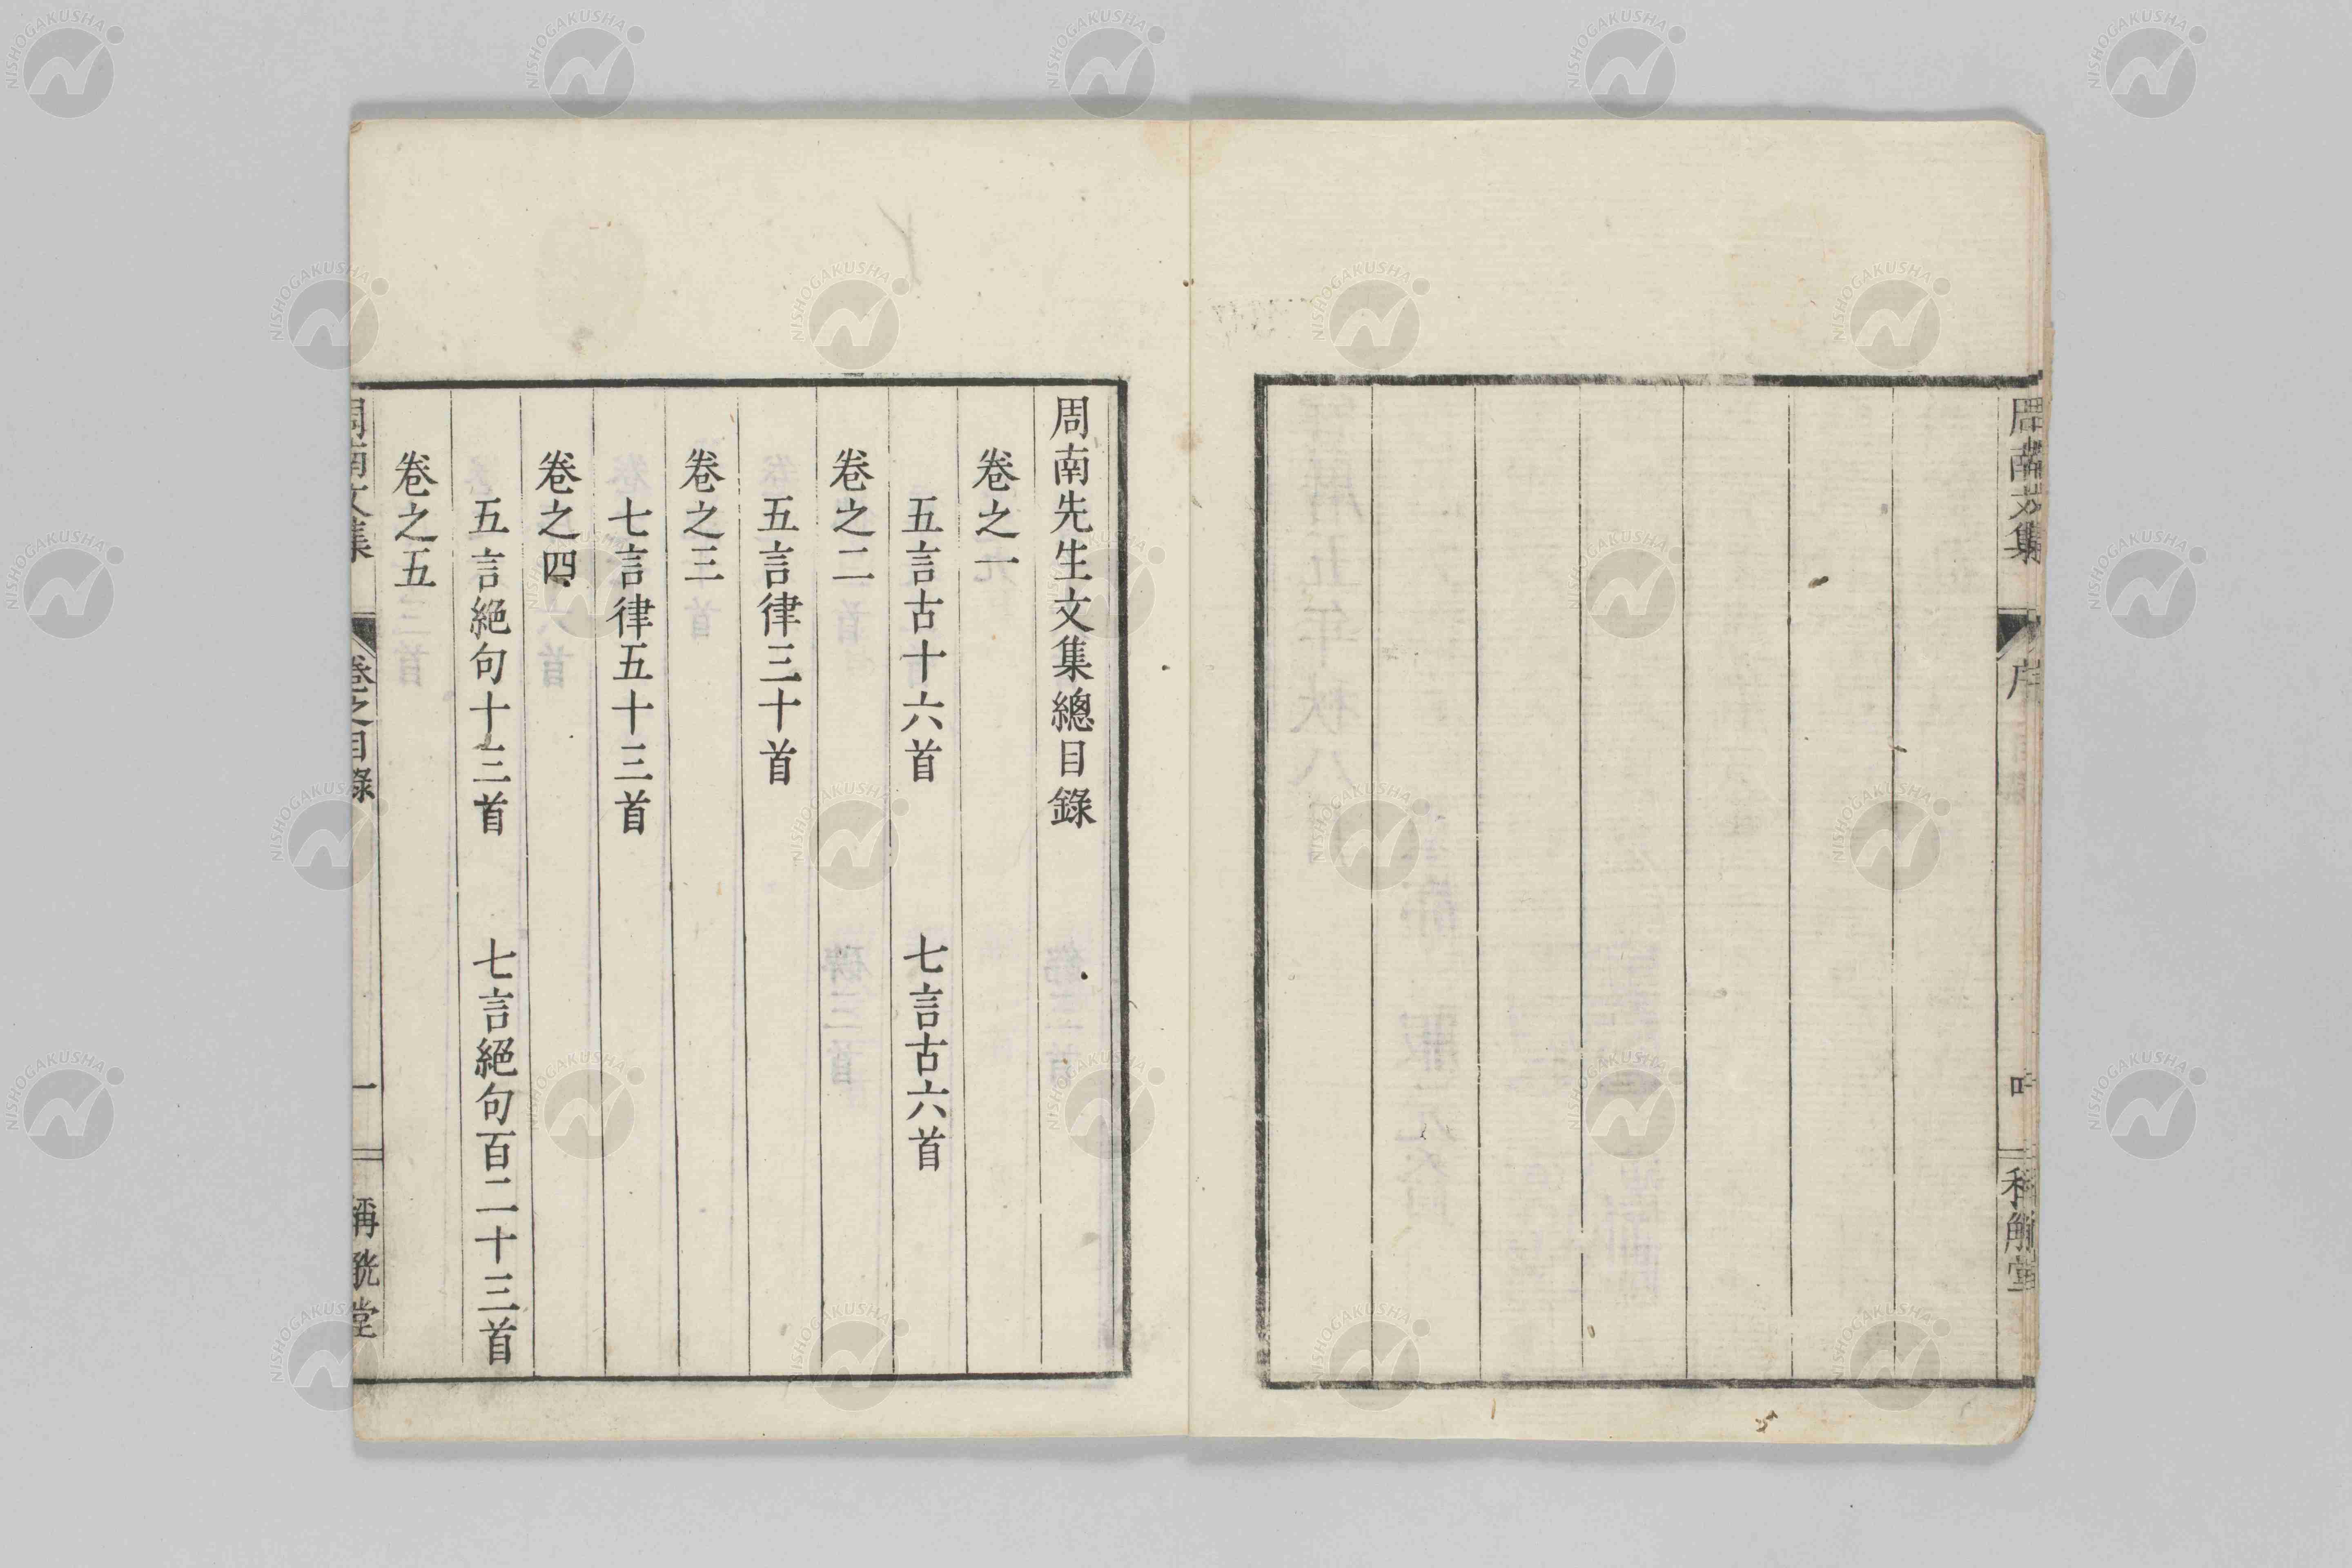 周南文集
序
稱觥堂
周南先生文集總目錄
卷之一
五言古十六首　七言古六首
卷之二
五言律三十首
卷之三
七言律五十三首
卷之四
五言絕句十三首　七言絕句百二十三首
卷之五
周南文集
卷之目錄
一
稱觥堂
NISHOGAKUSHA